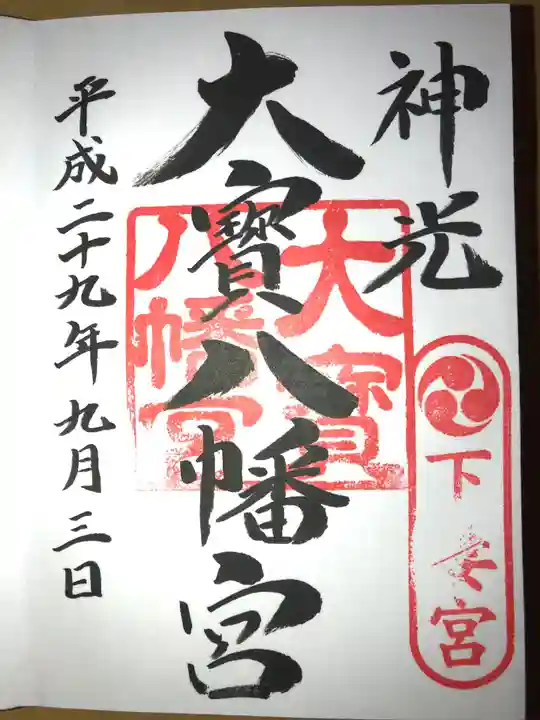 神光
下妻宮
大寳八幡宮
大寳八幡宮
平成二十九年九月三日